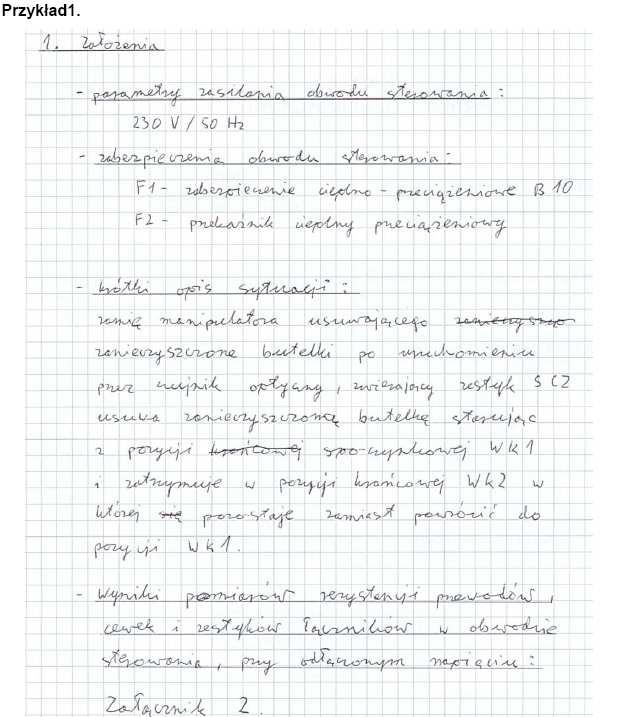 Przykład1.
1. Założenia
- parametry zasilania obwodu sterowania:
230 V / 50 Hz
- zabezpieczenia obwodu sterowania:
F1 - zabezpieczenie cieplno - przeciążeniowe B 10
F2 - przekaźnik cieplny przeciążeniowy
- krótki opis sytuacji:
ramię manipulatora usuwającego
zanieczyszczone butelki po uruchomieniu
przez czujnik optyczny, zwierający zestyk SC2
usuwa zanieczyszczoną butelkę startując
z pozycji końcowej spoczynkowej WK1
i zatrzymuje w pozycji krańcowej WK2 w
której się pozostaje zamiast powrócić do
pozycji WK1.
- wyniki pomiarów rezystancji przewodów,
cewek i zestyków łączników w obwodzie
sterowania, przy odłączonym napięciu:
Załącznik 2.